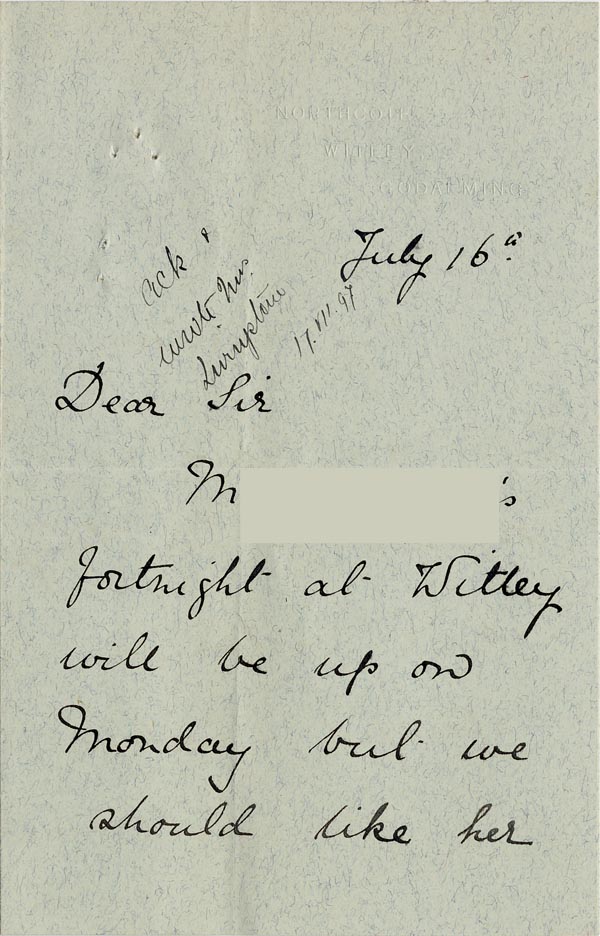 NORTHCOTE
WITLEY
GODALMING
July 16th
ack &
wrote Mrs.
17.VII.97
Dear Sir
M 's
fortnight at Witley
will be up on
Monday but we
should like her